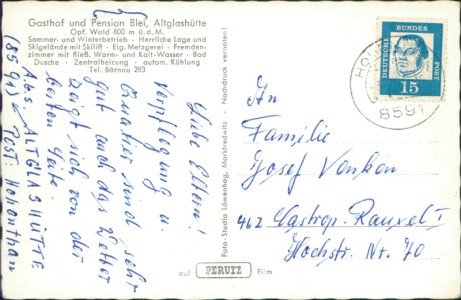 Gasthof und Pension Blei, Altglashütte
Opf. Wald 800 m ü. d. M.
Sommer- und Winterbetrieb - Herrliche Lage und
Skigelände mit Skilift - Eig. Metzgerei - Fremden-
zimmer mit fließ. Warm- und Kalt-Wasser - Bad
Dusche - Zentralheizung - autom. Kühlung
Tel. Bärnau 283
Liebe Eltern!
Verpflegung u.
Quatier sind sehr
gut auch das Wetter
zeigt sich von der
besten Seite.
Abs. ALTGLASHÜTTE
(8591) Post: Hohenthan
Foto-Studio Löwenhag, Marktredwitz - Nachdruck verboten!
auf PERUTZ Film
DEUTSCHE BUNDESPOST
15
HO
8591
An
Familie
Josef Vonkon
462 Castrop-Rauxel I
Hochstr. Nr. 70